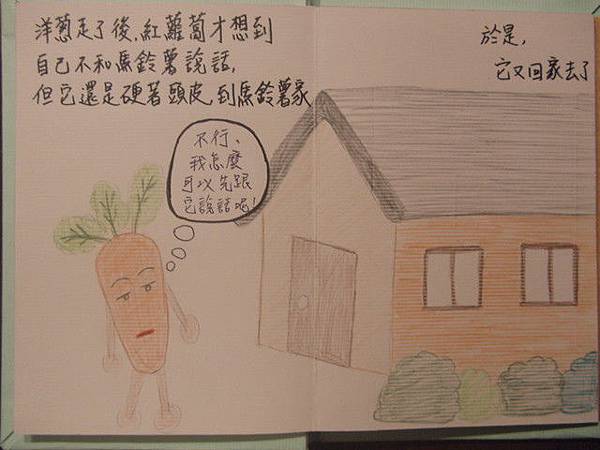 洋蔥走了後,紅蘿蔔才想到
自己不和馬鈴薯說話,
但它還是硬著頭皮,到馬鈴薯家
不行,
我怎麼
可以先跟
它說話呢!
於是,
它又回家去了